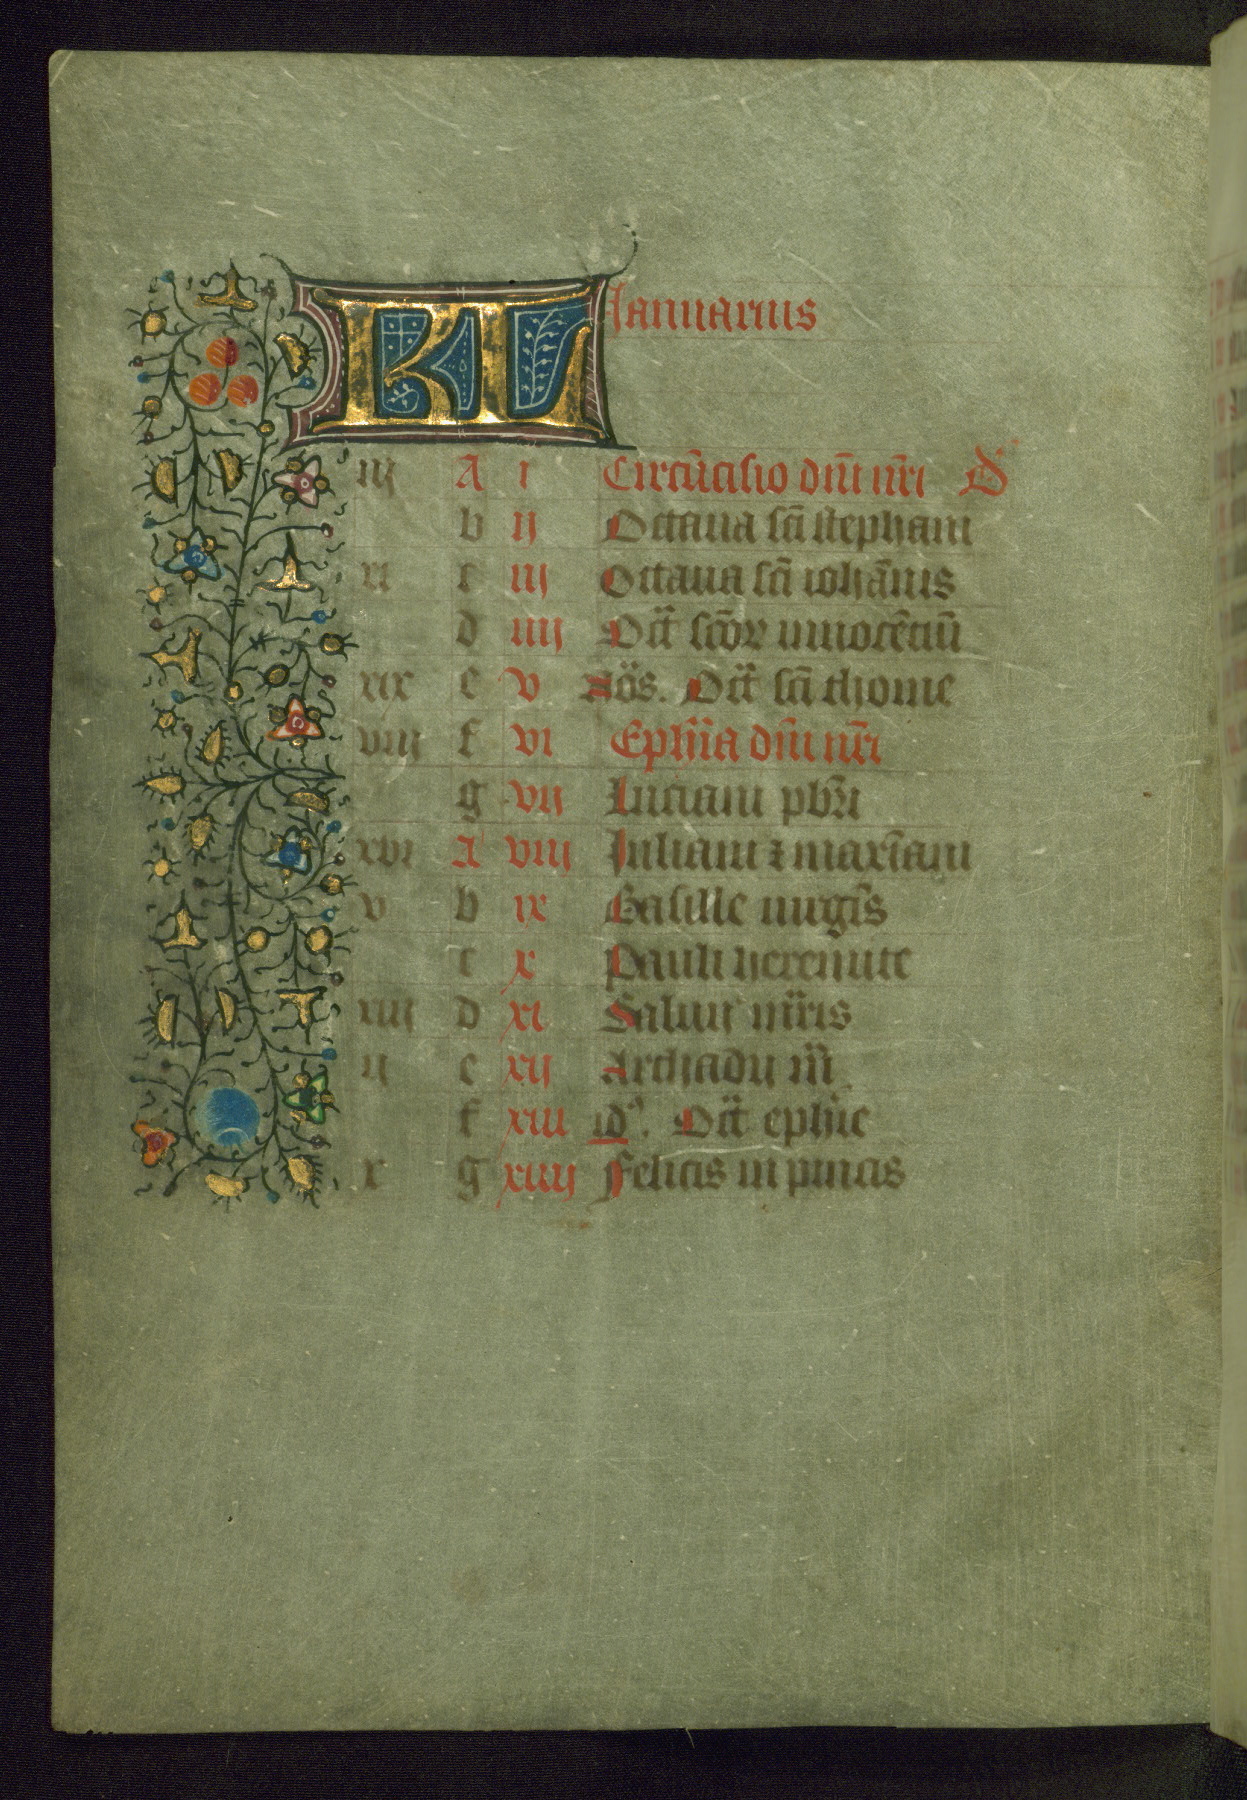 KL Ianuarius
iij A i Circūcisio dn̄i nr̄i D
b ij Octaua sc̄i stephani
xi c iij Octaua sc̄i iohān̄is
d iiij Oct̄ sc̄ōꝝ innocētiū
xix e v Nōs. Oct̄ sc̄i thome
viij f vi Eph̄ia dn̄i nr̄i
g vij Luciani pb̄ri
xvi A viij Iuliani ⁊ maxīani
v b ix Basille uirgīs
c x Pauli heremite
xiij d xi Saluij mr̄is
ij e xij Archadij m̄
f xiii id'. Oct̄ eph̄ie
x g xiiij Felicis in pincis